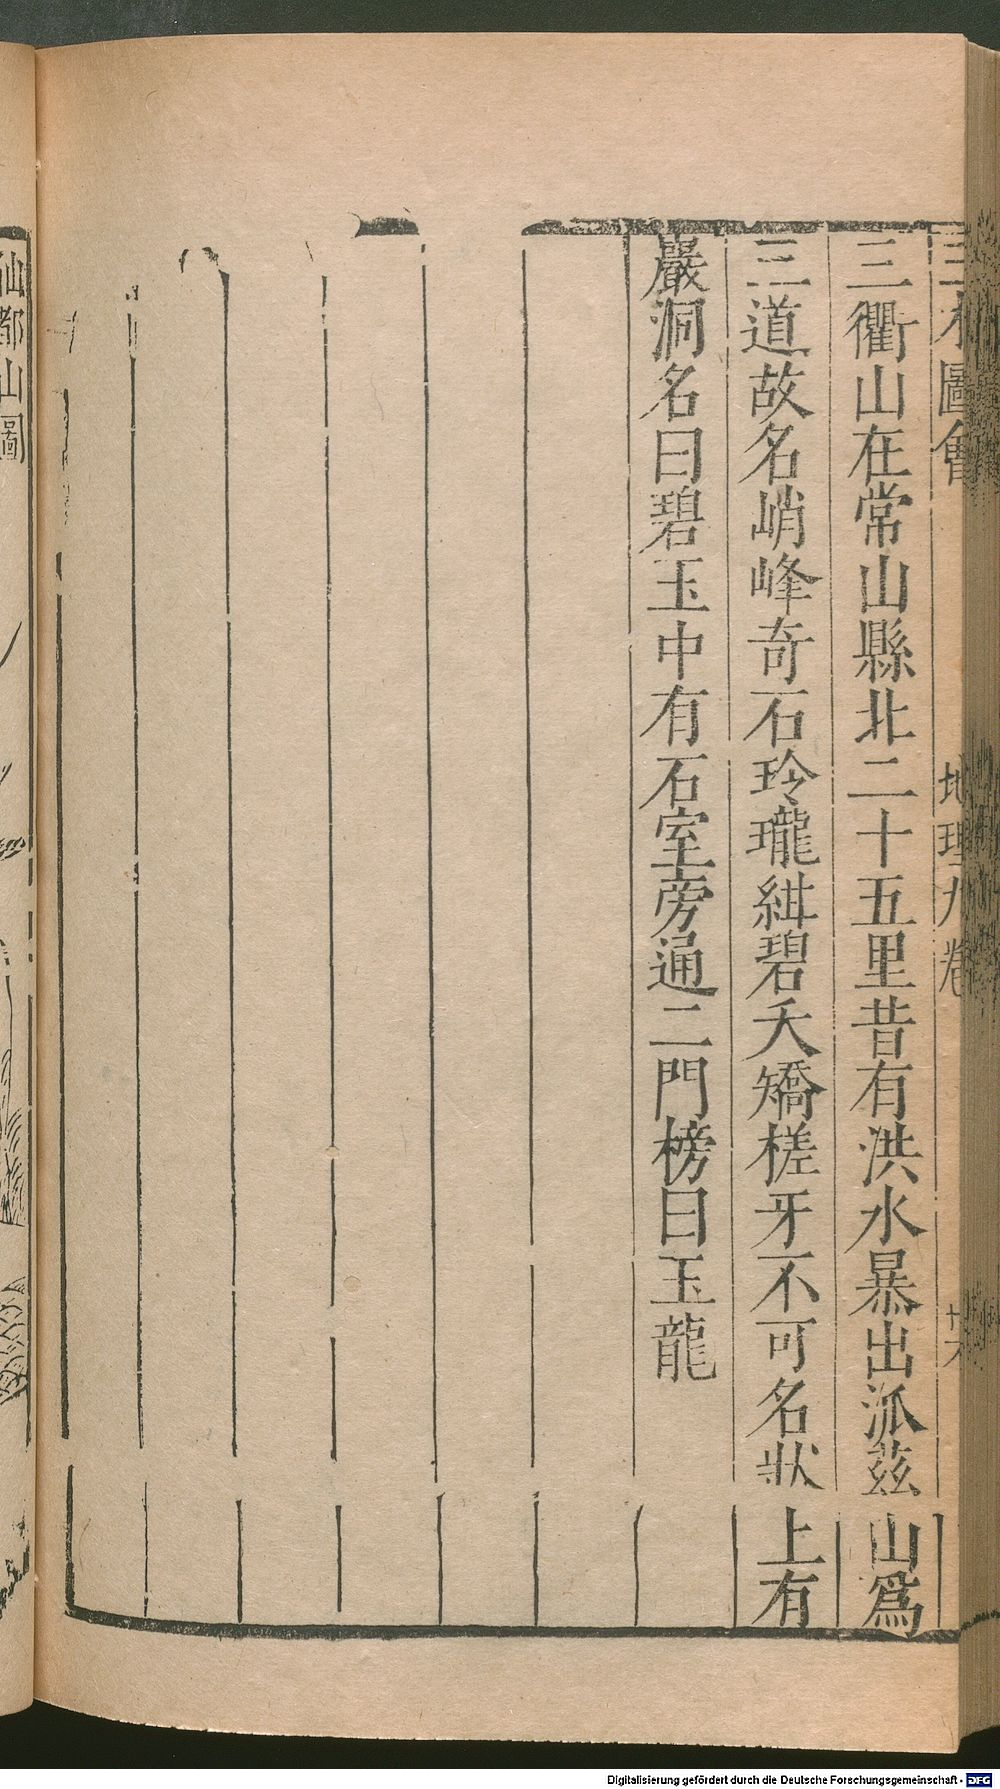 三才圖會 地理九卷 廿六
三衢山在常山縣北二十五里昔有洪水暴出派茲山爲
三道故名峭峰奇石玲瓏紺碧夭矯槎牙不可名狀上有
巖洞名曰碧玉中有石室旁通二門榜曰玉龍
仙都山圖
Digitalisierung gefördert durch die Deutsche Forschungsgemeinschaft - DFG